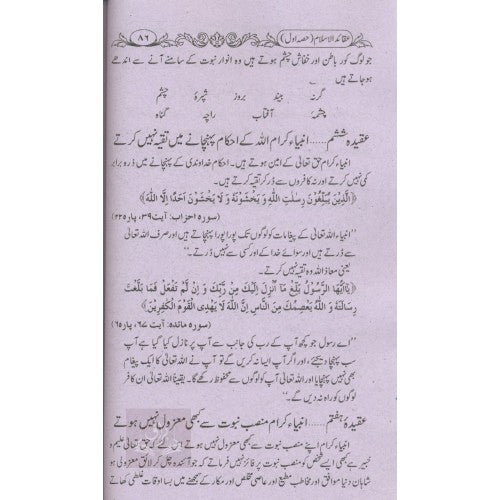 عقائد الاسلام (حصہ اول) ﴿۸۶﴾
جو لوگ کور باطن اور خفاش چشم ہوتے ہیں وہ انوار نبوت کے سامنے آنے سے اندھے
ہو جاتے ہیں
گر نہ بیند بروز شپرۂ چشم
چشمۂ آفتاب راچہ گناہ
عقیدہ ششم..... انبیاء کرام اللہ کے احکام پہنچانے میں تقیہ نہیں کرتے
انبیاء کرام حق تعالیٰ کے امین ہوتے ہیں۔ احکام خداوندی کے پہنچانے میں ذرہ برابر
کمی نہیں کرتے اور نہ کافروں سے ڈر کر تقیہ کرتے ہیں۔
﴿اَلَّذِیْنَ یُبَلِّغُوْنَ رِسٰلٰتِ اللّٰهِ وَ یَخْشَوْنَهٗ وَ لَا یَخْشَوْنَ اَحَدًا اِلَّا اللّٰهَ﴾
(سورہ احزاب: آیت ۳۹، پارہ ۲۲)
”انبیاء اللہ تعالیٰ کے پیغامات کو لوگوں تک پورا پورا پہنچاتے ہیں اور صرف اللہ تعالیٰ
سے ڈرتے ہیں اور سوائے خدا کے اور کسی سے نہیں ڈرتے۔“
یعنی معاذ اللہ وہ تقیہ نہیں کرتے۔
﴿یٰٓاَیُّهَا الرَّسُوْلُ بَلِّغْ مَآ اُنْزِلَ اِلَیْكَ مِنْ رَّبِّكَ وَ اِنْ لَّمْ تَفْعَلْ فَمَا بَلَّغْتَ
رِسَالَتَهٗ وَ اللّٰهُ یَعْصِمُكَ مِنَ النَّاسِ اِنَّ اللّٰهَ لَا یَهْدِی الْقَوْمَ الْكٰفِرِیْنَ﴾
(سورہ مائدہ: آیت ۶۷، پارہ ۶)
”اے رسول جو کچھ آپ کے رب کی جانب سے آپ پر نازل کیا گیا ہے آپ
سب پہنچا دیجئے، اور اگر آپ ایسا نہ کریں گے تو آپ نے اللہ تعالیٰ کا ایک پیغام
بھی نہیں پہنچایا اور اللہ تعالیٰ آپ کو لوگوں سے محفوظ رکھے گا۔ یقیناً اللہ تعالیٰ ان کافر
لوگوں کو راہ نہ دیں گے۔“
عقیدۂ ہفتم..... انبیاء کرام منصب نبوت سے کبھی معزول نہیں ہوتے
انبیاء کرام اپنے منصب نبوت سے کبھی معزول نہیں ہوتے اس لئے کہ حق تعالیٰ علیم و
خبیر ہے کبھی ایسے شخص کو منصب نبوت پر فائز نہیں فرماتے کہ جو آئندہ چل کر لائق معزولی ہو
شاہان دنیا موافق اور مخالف مطیع اور عاصی مخلص اور مکار کے سمجھنے میں بسا اوقات غلطی کھاتے